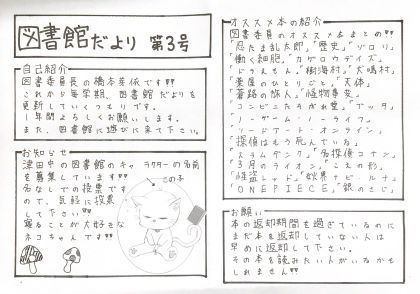 図書館だより 第3号
自己紹介
図書委員長の橋本芽依です!!
これから毎学期、図書館だよりを
更新していくつもりです。
1年間よろしくお願いします。
また、図書館に遊びに来て下さい。
お知らせ
津田中の図書館のキャラクターの名前
を募集しています!!
この子
名なしでの投票です
ので、気軽に投票
して下さい!!
寝ることが大好きな
ネコちゃんです!!
オススメ本の紹介
図書委員のオススメ本まとめ!!
「忍たま乱太郎」「歴史」「ゾロリ」
「働く細胞」「カゲロウデイズ」
「ドラえもん」「樹海村」「犬鳴村」
「薬屋のひとりごと」「天体」
「着路の旅人」「怪物事変」
「コンビニたそがれ堂」「ブッダ」
「ノーゲーム・ノーライフ」
「ソードアート・オンライン」
「探偵はもう死んでいる」
「スラムダンク」「名探偵コナン」
「3月のライオン」「こえの形」
「怪盗レッド」「妖界ナビ・ルナ」
「ONE PIECE」「銀のさじ」
お願い
本の返却期間を過ぎているのに
まだ本を返却していない人は
早めに返却して下さい。
その本を読みたい人がいるかも
しれません!!